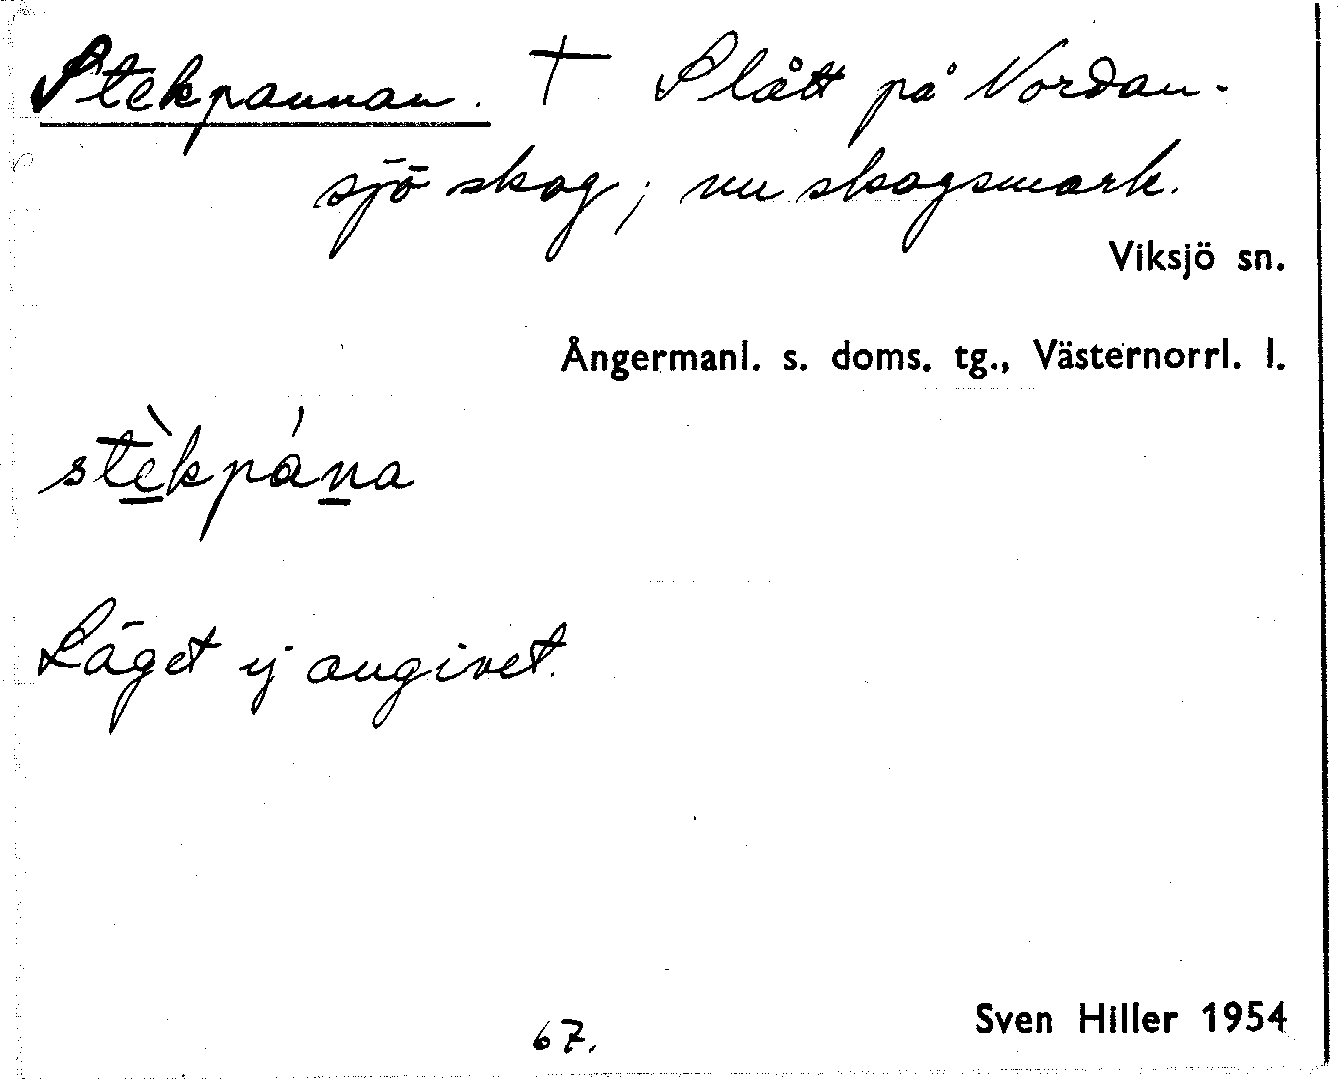 Stekpannan. † Slått på Nordan-
sjö skog; nu skogsmark.
Viksjö sn.
Ångermanl. s. doms. tg., Västernorrl. l.
stèkpána
Läget ej angivet.
67.
Sven Hiller 1954